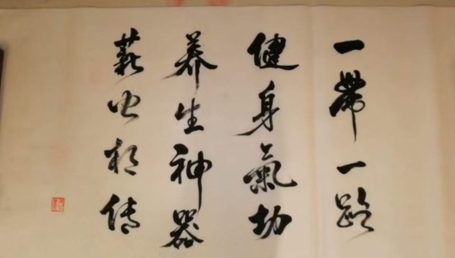 一帶一路
健身氣功
养生神器
薪火相传